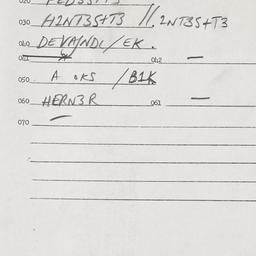 020
030 H2NT3S+T3 //. 2NT3S+T3
040 DEVA/NDL/EK.
041 042 —
050 A OKS /B1K
060 HERN3R 061 —
070 —